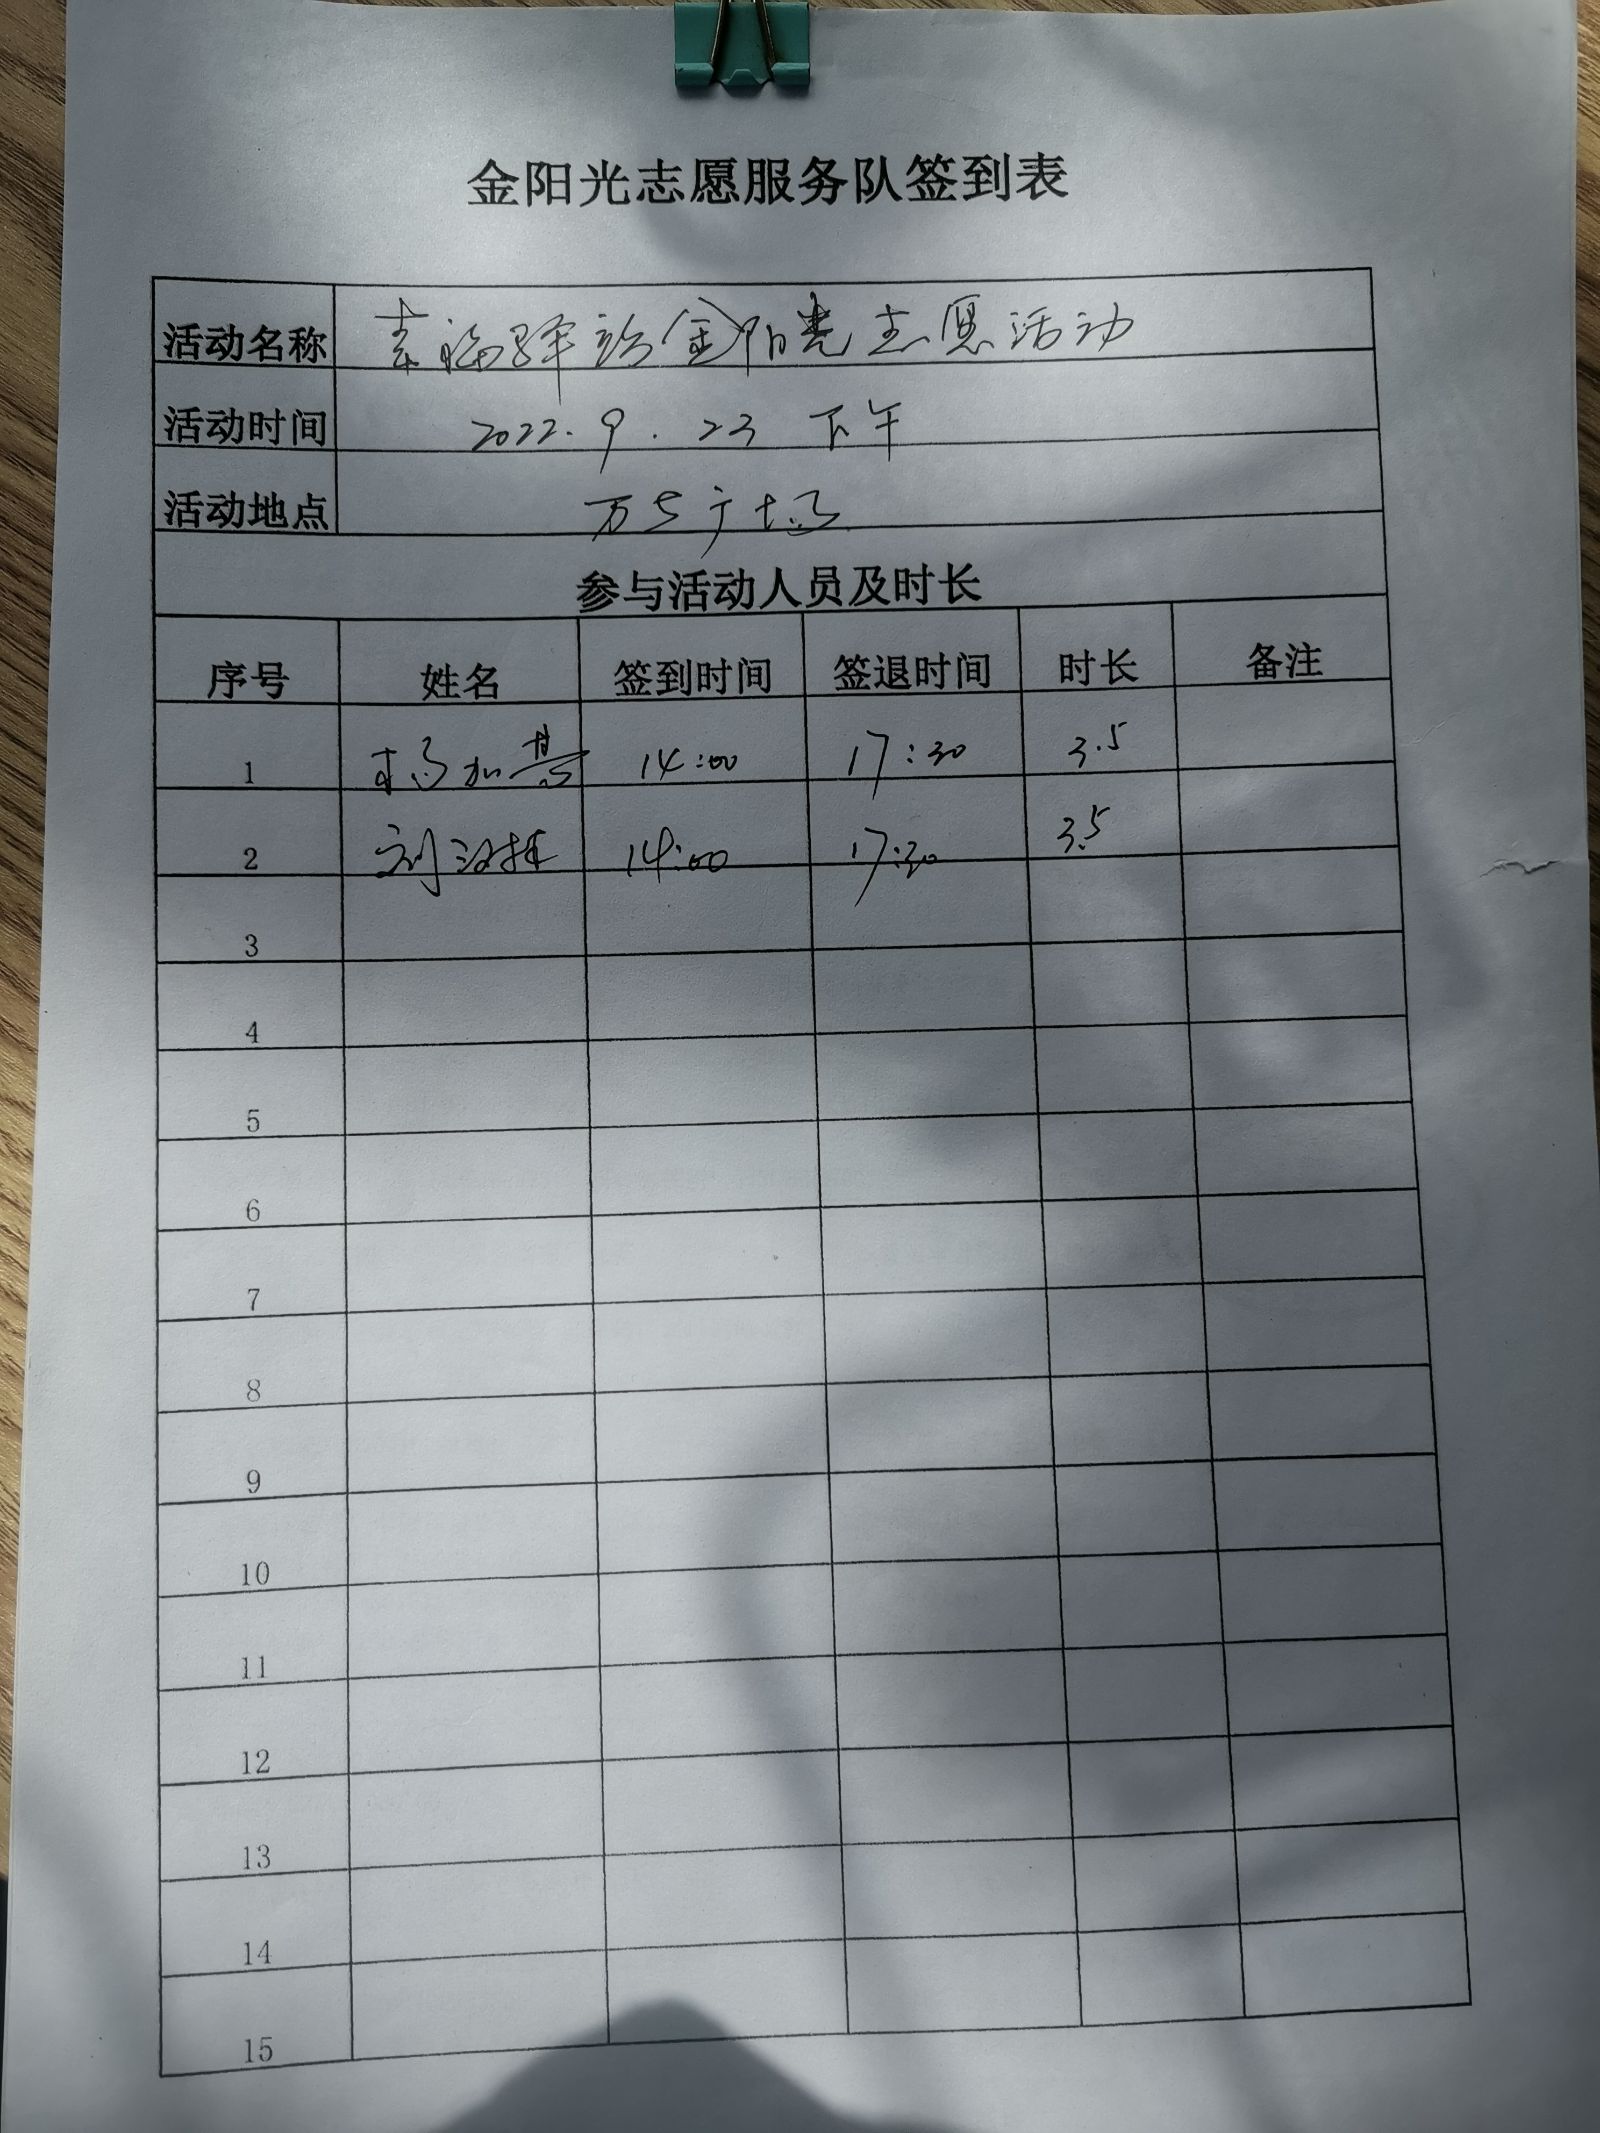 金阳光志愿服务队签到表
活动名称 幸福驿站金阳光志愿活动
活动时间 2022.9.23 下午
活动地点 万与广场
参与活动人员及时长
序号 姓名 签到时间 签退时间 时长 备注
1 杨加慧 14:00 17:30 3.5
2 刘汉林 14:00 17:30 3.5
3
4
5
6
7
8
9
10
11
12
13
14
15